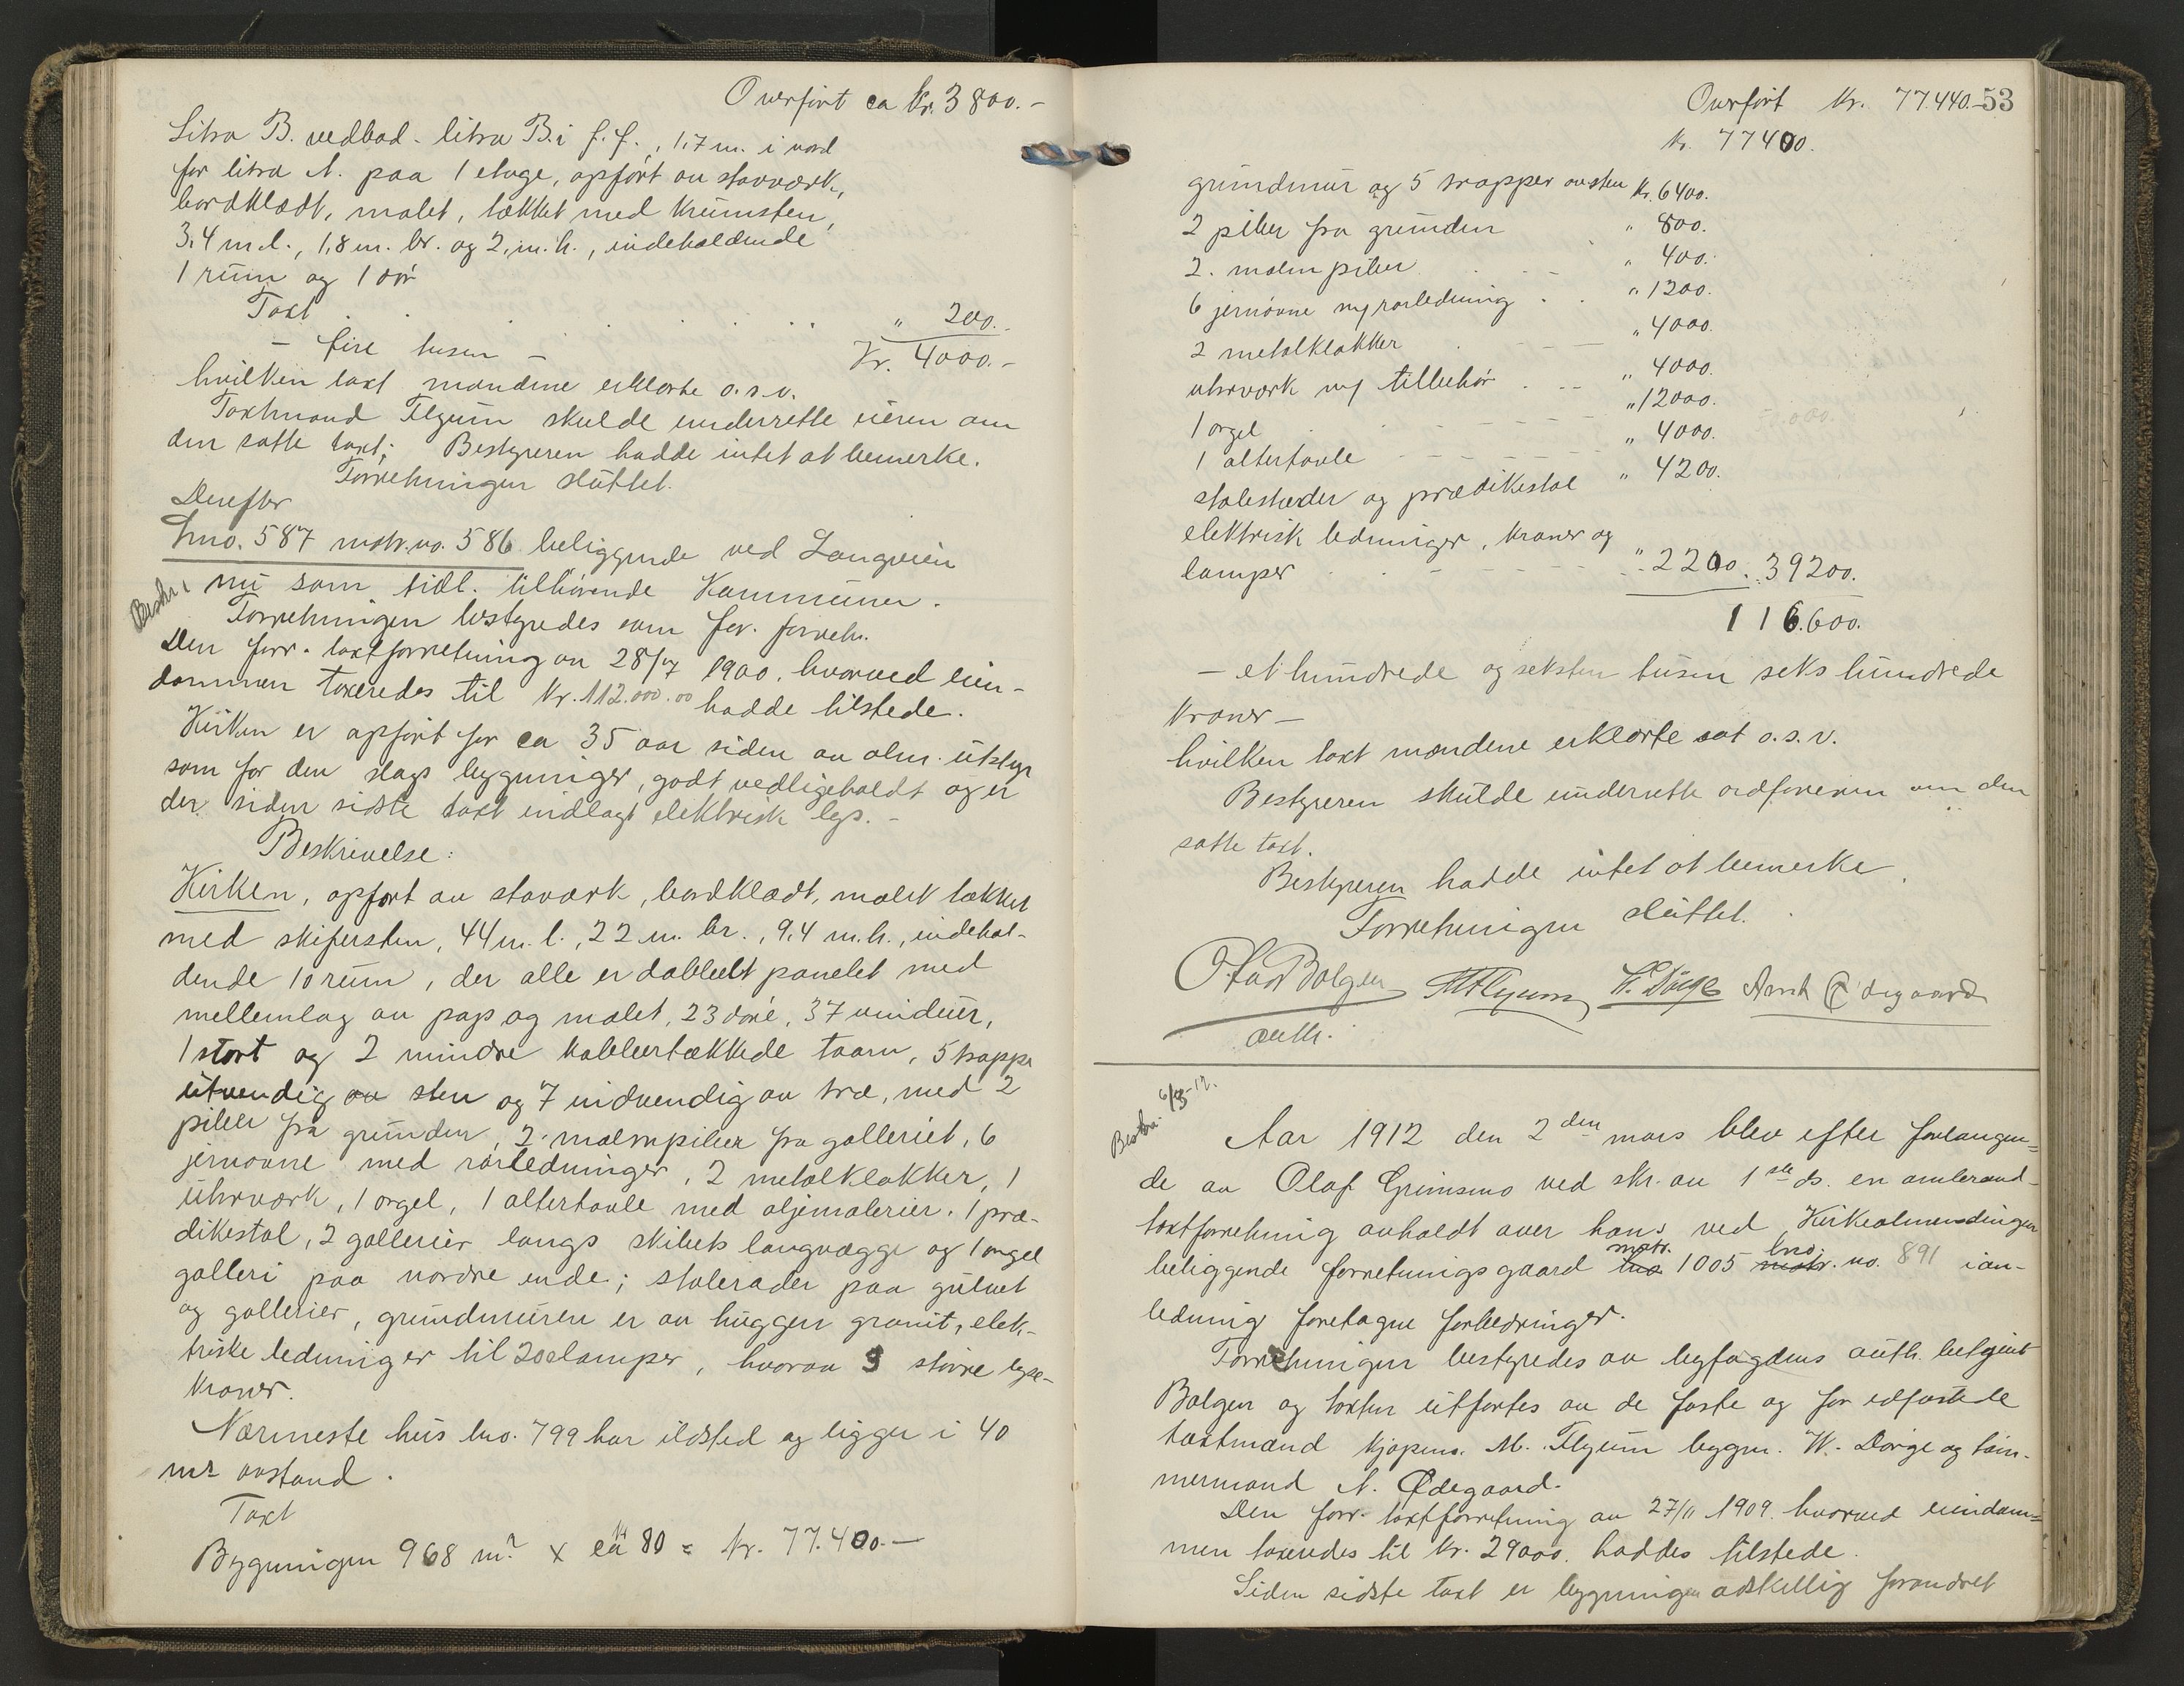 Overført ca Kr. 3800.-
Litra B. vedbod - litra B. i f. f., 1,7 m. i nord
for litra A. paa 1 etage, opført av stavværk,
bordklædt, malet, tækket med krumsten,
3,4 m.l., 1,8 m. br. og 2, m. h., indeholdende
1 rum og 1 dør
Taxt . . . . . . . " 200.
- fire tusen - Kr. 4000.-
hvilken taxt mændene erklærte o.s.v.
Taxtmand Flyum skulde underrette eieren om
den satte taxt; Bestyreren hadde intet at bemerke.
Forretningen sluttet.
Derefter
Lno. 587 matr. no. 586 beliggende ved Langveien
Beskr.
nu som tidl. tilhørende Kommunen.
Forretningen bestyredes som for. forretn.
Den forr. taxtforretning av 28/7 1900. hvorved eien-
dommen taxeredes til Kr. 112.000.00 hadde tilstede.
Kirken er opført for ca 35 aar siden av alm. utstyr
som for den slags bygninger, godt vedligeholdt og er
der siden sidste taxt indlagt elektrisk lys. -
Beskrivelse:
Kirken, opført av stavværk, bordklædt, malet tækket
med skifersten, 44 m. l., 22 m. br., 9,4 m. h., indehol-
dende 10 rum, der alle er dobbelt panelet med
mellemlag av pap og malet, 23 døre, 37 vinduer,
1 stort og 2 mindre kobbertækkede taarn, 5 trapper
utvendig av sten og 7 indvendig av træ, med 2
piler fra grunden, 2 malmpiler fra galleriet, 6
jernovne med rørledninger, 2 metalklokker, 1
uhrværk, 1 orgel, 1 altertavle med oljemalerier. 1 præ-
dikestol, 2 gallerier langs skibets langvægge og 1 orgel
galleri paa nordre ende; stolerader paa gulvet
og gallerier, grundmuren er av huggen granit, elek-
triske ledninger til 200 lamper, hvorav 3 større lyse-
kroner.
Nærmeste hus lno. 799 har ildsted og ligger i 40
mr avstand.
Taxt
Bygningen 968 m² x ca kr 80 = kr. 77.400.-
Overført Kr. 77.440.- 53
kr. 77400.
grundmur og 5 trapper av sten Kr. 6400.
2 piler fra grunden " 800.
2. malm piler . - - " 400.
6 jernovne m/ rørledning . . " 1200.
2 metalklokker - - - " 4000.
uhrværk m/ tilbehør . - - " 4000.
1 orgel - - - " 12000.
1 altertavle - - - - " 4000.
stolestader og prædikestol " 4200.
elektrisk ledninger, kroner og
lamper . . - - - - " 2200. 39200.
116.600.
- et hundrede og seksten tusen seks hundrede
kroner -
hvilken taxt mændene erklærte sat o.s.v.
Bestyreren skulde underrette ordføreren om den
satte taxt.
Bestyreren hadde intet at bemerke.
Forretningen sluttet.
Olaf Bolgen M Flyum W. Dørge Arnt Ødegaard
auth.
Beskr. 6/3-12.
Aar 1912 den 2den mars blev efter forlangen=
de av Olaf Grimsmo ved skr. av 1ste ds. en ombrand-
taxtforretning avholdt over hans ved Kirkealmendingen
beliggende forretningsgaard matr. 1005 lno. no. 891 i an-
ledning foretagne forbedringer.
Forretningen bestyredes av byfogdens auth. betjent
Bolgen og taxten utførtes av de faste og for edfæstede
taxtmænd kjøpm. M. Flyum bygm. W. Dørge og tøm-
mermand A. Ødegaard.
Den forr. taxtforretning av 27/11 1909. hvorved eiendom=
men taxeredes til kr. 29000. haddes tilstede.
Siden sidste taxt er bygningen adskillig forandret